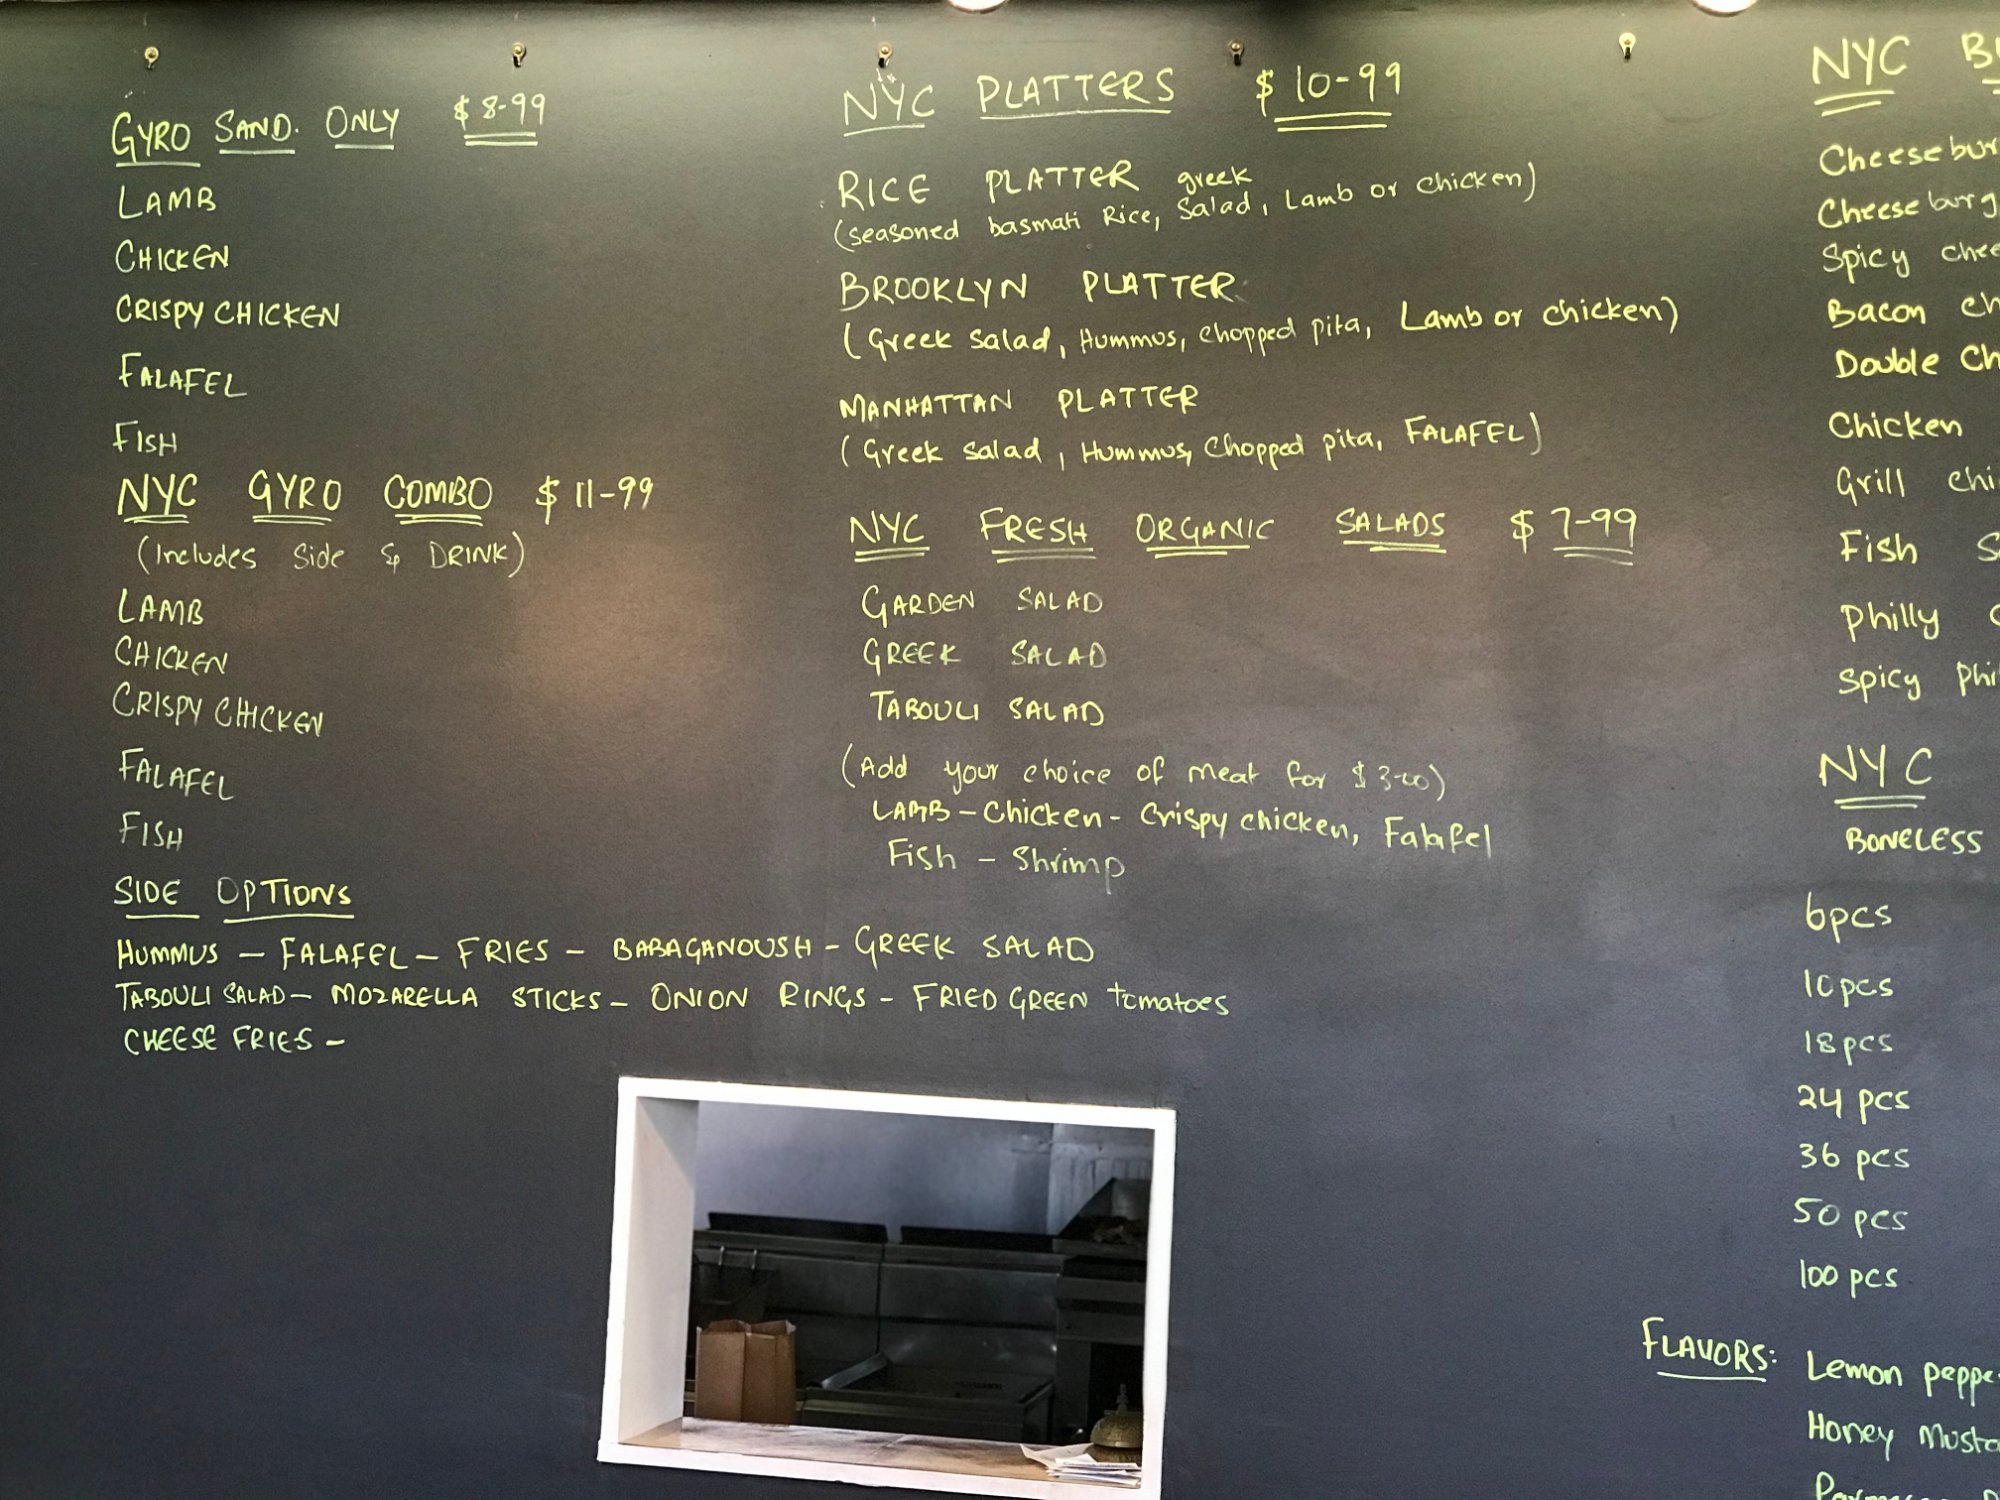 GYRO SAND. ONLY $ 8-99
LAMB
CHICKEN
CRISPY CHICKEN
FALAFEL
FISH
NYC GYRO COMBO $ 11-99
(Includes Side & DRINK)
LAMB
CHICKEN
CRISPY CHICKEN
FALAFEL
FISH
SIDE OPTIONS
HUMMUS – FALAFEL – FRIES – BABAGANOUSH – GREEK SALAD
TABOULI SALAD – MOZARELLA STICKS – ONION RINGS – FRIED GREEN tomatoes
CHEESE FRIES –
NYC PLATTERS $ 10-99
RICE PLATTER greek
(seasoned basmati Rice, Salad, Lamb or chicken)
BROOKLYN PLATTER
(Greek salad, Hummus, Chopped pita, Lamb or chicken)
MANHATTAN PLATTER
(Greek salad, Hummus, Chopped pita, FALAFEL)
NYC FRESH ORGANIC SALADS $ 7-99
GARDEN SALAD
GREEK SALAD
TABOULI SALAD
(Add your choice of meat for $ 3-00)
LAMB – Chicken – Crispy chicken, Falafel
Fish – Shrimp
NYC
Spicy
Bacon
Double
Chicken
Grill
Fish
Philly
Spicy
NYC
BONELESS
6pcs
10pcs
18pcs
24 pcs
36 pcs
50 pcs
100 pcs
FLAVORS: Lemon
Honey